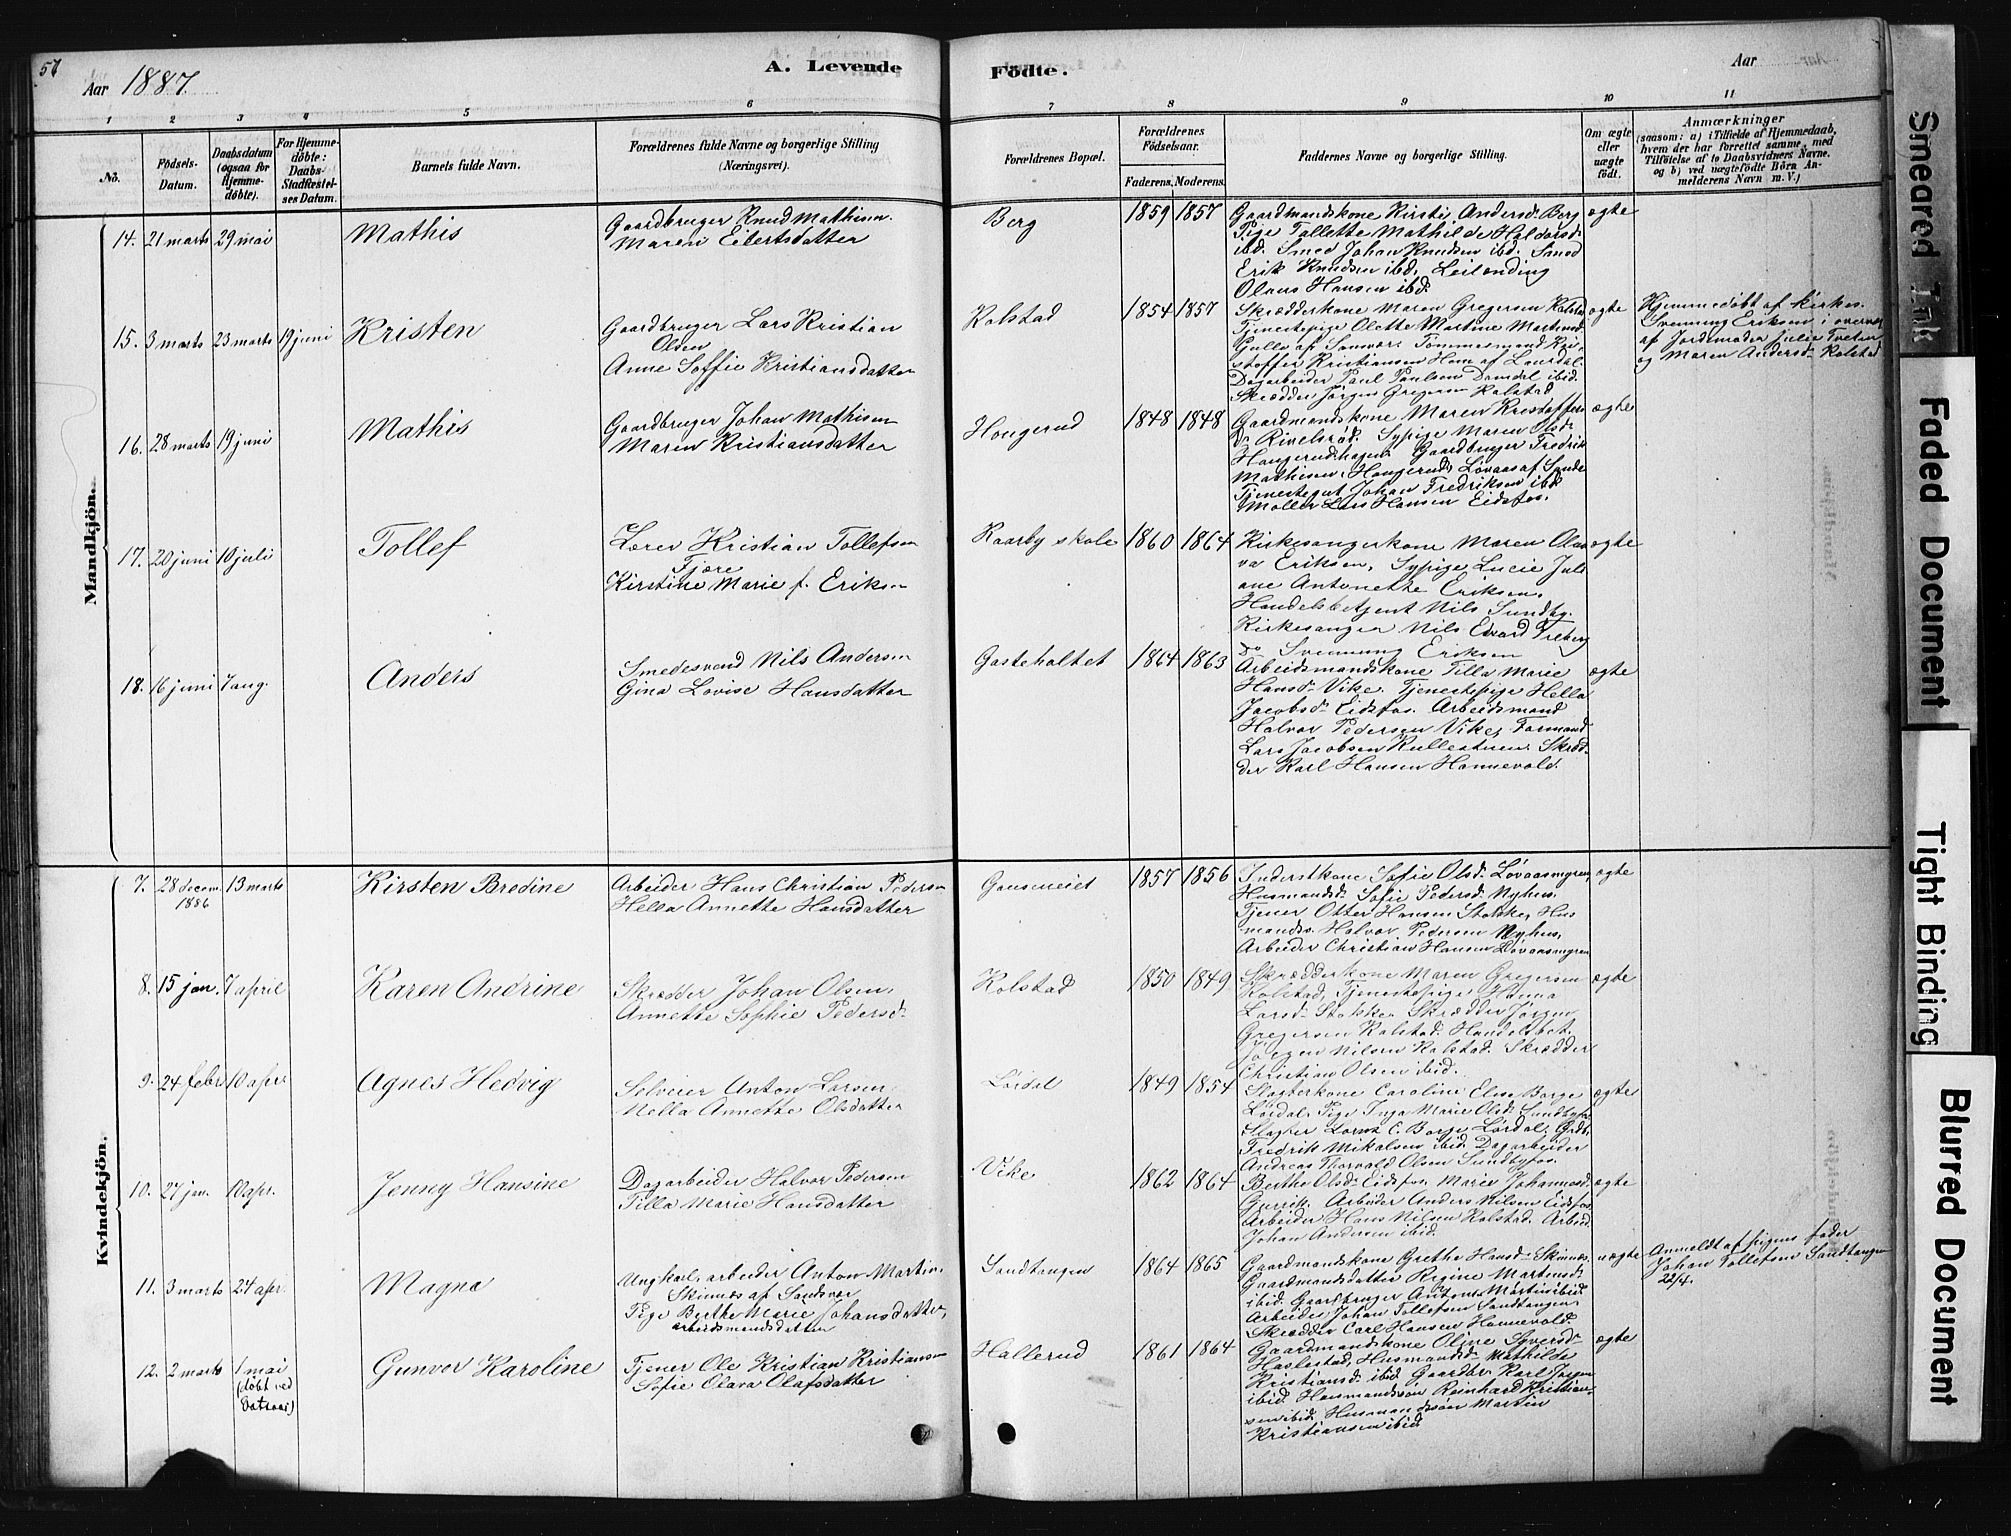 57
Aar 1887.
A. Levende
Födte.
Aar
1 2 3 4 5 6 7 8 9 10 11
No.
Födsels-
Datum.
Daabsdatum
(ogsaa for
Hjemme-
döbte).
For Hjemme-
döbte:
Daabs-
Stadfæstel-
ses Datum.
Barnets fulde Navn.
Forældrenes fulde Navne og borgerlige Stilling
(Næringsvei).
Forældrenes Bopæl.
Forældrenes
Födselsaar.
Faderens. Moderens.
Faddernes Navne og borgerlige Stilling.
Om ægte
eller
uægte
födt.
Anmærkninger
(saasom: a) i Tilfælde af Hjemmedaab,
hvem der har forrettet samme, med
Tilföielse af to Daabsvidners Navne,
og b) ved uægtefödte Börn An-
melderens Navn m. V.)
Mandkjön.
14. 21 marts 29 mai
Mathis
Gaardbruger Knud Mathisen
Maren Eilertsdatter
Berg
1859 1857
Gaardmandskone Kirsti Andersd. Berg
Pige Tollette Mathilde Haldorsd.
ibd. Smed Johan Knudsen ibd. Smed
Erik Knudsen ibd. Leilending
Olaus Hansen ibd.
ægte
15. 3 marts 23 marts 19 juni
Kristen
Gaardbruger Lars Kristian
Olsen
Anne Soffie Kristiansdatter
Kolstad
1854 1857
Skrædderkone Maren Gregersen Kolstad
Tjenestepige Olette Martine Martinsd.
Gulle af Sandvær Tømmermand Kri-
stoffer Kristiansen Hem af Laurdal
Dagarbeider Paul Paulsen Damdal ibid.
Skrædder Jørgen Gregersen Kolstad
ægte
Hjemmedøbt af kirkes.
Svenning Eriksen i overvær
af Jordemoder Julie Tveten
og Maren Andersd. Kolstad
16. 28 marts 19 juni
Mathis
Gaardbruger Johan Mathisen
Maren Kristiansdatter
Hougerud
1848 1848
Gaardmandskone Maren Kristoffers
D. Rivelsrød. Sypige Maren Olsd.
Hougerudhagen Gaardbruger Fredrik
Mathisen Hougerud, Løvaas af Sande
Tjenestegut Johan Fredriksen ibd.
Møller Lars Hansen Eidsfos.
ægte
17. 20 juni 10 juli
Tollef
Lærer Kristian Tollefsen
Fjære
Kirstine Marie f. Eriksen
Kaarby skole
1860 1864
Kirkesangerkone Maren Olav
va Eriksen, Sypige Lucie Juli
ane Antonette Eriksen,
Handelsbetjent Nils Sundby.
Kirkesanger Nils Edvard Freberg
Do Svenning Eriksen
ægte
18. 16 juni 7 aug.
Anders
Smedesvend Nils Andersen
Gina Lovise Hansdatter
Gasteholtet
1864 1863
Arbeidsmandskone Tilla Marie
Hansd. Vike. Tjenestepige Hella
Jacobsd. Eidsfos. Arbeidsmand
Halvor Pedersen Vike, Formand
Lars Jacobsen Kullesturen Skræd-
der Karl Hansen Hannevold.
ægte
Kvindekjön.
7. 28 decem. 13 marts
1886
Kirsten Bredine
Arbeider Hans Christian Pedersen
Hella Annette Hansdatter
Gauseneiet
1857 1856
Inderstkone Sofie Olsd. Løvaasmyren,
Husmandsd. Sofie Pedersd. Nyhus,
Tjener Otter Hansen Stokke, Hus
mands. Halvor Pedersen Nyhus,
Arbeider Christian Hansen Løvaasmyren
ægte
8. 15 jan. 7 april
Karen Andrine
Skrædder Johan Olsen
Annette Sophie Pedersd.
Kolstad
1850 1849
Skrædderkone Maren Gregersen
Kolstad, Tjenestepige Hanna
Larsd. Stokke Skrædder Jørgen
Gregersen Kolstad. Handelsbet.
Jørgen Nilsen Kolstad. Skrædder
Christian Olsen ibid.
ægte
9. 24 febr 10 apr.
Agnes Hedvig
Selveier Anton Larsen
Mella Annette Olsdatter
Lørdal
1849 1854
Slagterkone Caroline Elise Borge
Lørdal, Pige Inga Marie Olsd. Sundbyfos
Slagter Lorentz C. Borge Lørdal. Grdb.
Fredrik Mikalsen ibid. Dagarbeider
Andreas Thorvald Olsen Sundbyfos.
ægte
10. 27 jan. 10 apr.
Jenny Hansine
Dagarbeider Halvor Pedersen
Tilla Marie Hansdatter
Vike
1862 1864
Berthe Olsd. Eidsfos, Marie Johannesd.
Gjerrik. Arbeider Anders Nilsen Eidsfos
Arbeider Hans Nilsen Kolstad. Arbeid.
Johan Andersen ibid.
ægte
11. 3 marts 24 apr.
Magna
Ungkarl, arbeider Anton Martin.
Skinnes af Sandsvær
Pige Berthe Marie Johansdatter,
arbeidsmandsdatter
Sandtangen
1864 1865
Gaardmandskone Grethe Hansd. Skinnes,
Gaardmandsdatter Regine Martinsd.
ibid. Gaardbruger Anton Martin ibid.
Arbeider Johan Tollefsen Sandtangen
Skrædder Carl Hansen Hannevold.
uægte
Anmeldt af pigens fader
Johan Tollefsen Sandtangen
22/4.
12. 2 marts 1 mai
(døbt ved
Vatsaas)
Gunvor Karoline
Tjener Ole Kristian Kristiansen
Sofie Olava Olafsdatter
Hallerud
1861 1864
Gaardmandskone Oline Syversd.
Haslestad, Husmandsd. Mathilde
Kristiansd. ibid. Gaardbr. Karl Jørgen
ibid. Husmandssøn Reinhard Kristian-
sen ibid. Husmandssøn Martin
Kristiansen ibid.
ægte
Smeared Ink
Faded Document
Tight Binding
Blurred Document